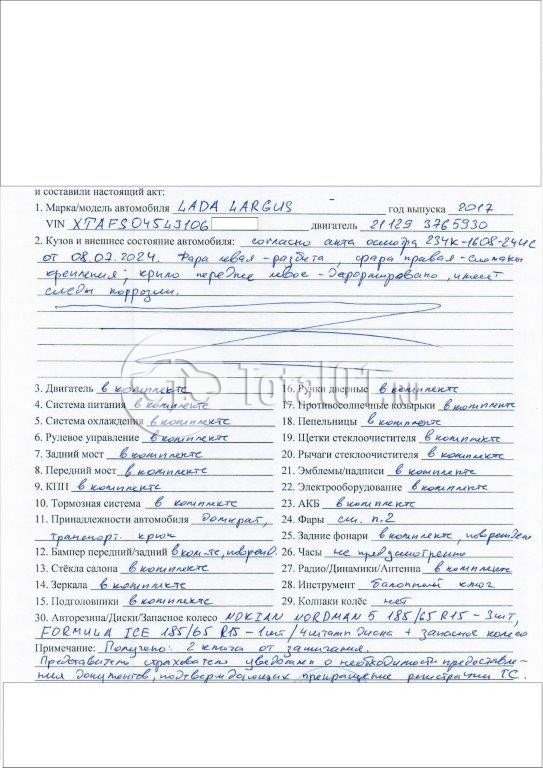 и составили настоящий акт:
1. Марка/модель автомобиля LADA LARGUS год выпуска 2017
VIN XTAFS045LJ106 двигатель 21129 3765930
2. Кузов и внешнее состояние автомобиля: согласно акта осмотра 234к-1608-24ИС
от 08.07.2024. Фара левая - разбита, фара правая - сломаны
крепления; крыло переднее левое - деформировано, имеет
следы коррозии.
3. Двигатель в комплекте 16. Ручки дверные в комплекте
4. Система питания в комплекте 17. Противосолнечные козырьки в комплекте
5. Система охлаждения в комплекте 18. Пепельницы в комплекте
6. Рулевое управление в комплекте 19. Щетки стеклоочистителя в комплекте
7. Задний мост в комплекте 20. Рычаги стеклоочистителя в комплекте
8. Передний мост в комплекте 21. Эмблемы/надписи в комплекте
9. КПП в комплекте 22. Электрооборудование в комплекте
10. Тормозная система в комплекте 23. АКБ в комплекте
11. Принадлежности автомобиля домкрат, 24. Фары см. п.2
транспорт. крюк 25. Задние фонари в комплекте, поврежден
12. Бампер передний/задний в ком-те, поврежд. 26. Часы не предусмотрено
13. Стёкла салона в комплекте 27. Радио/Динамики/Антенна в комплекте
14. Зеркала в комплекте 28. Инструмент балонный ключ
15. Подголовники в комплекте 29. Колпаки колёс нет
30. Авторезина/Диски/Запасное колесо NOKIAN NORDMAN 5 185/65 R15 - 3шт,
FORMULA ICE 185/65 R15 - 1шт / 4 штамп диска + запасное колесо
Примечание: Получено: 2 ключа от зажигания.
Представитель страхователя уведомлен о необходимости предоставле-
ния документов, подтверждающих прекращение регистрации ТС.
Total01.RU